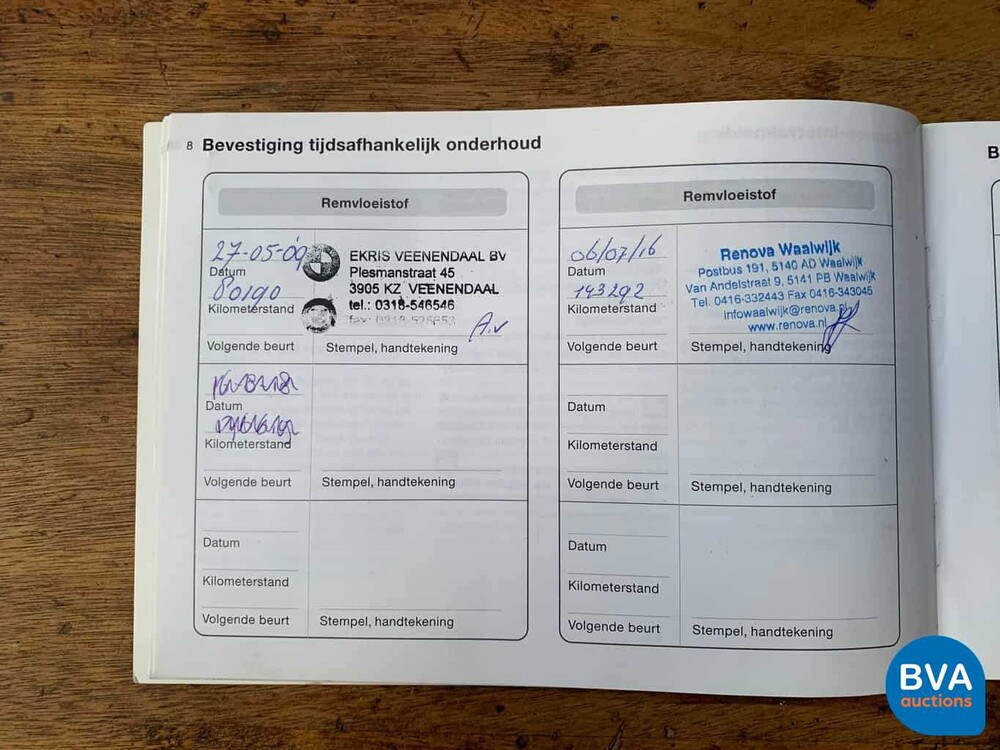 8 Bevestiging tijdsafhankelijk onderhoud
Remvloeistof
27-05-09
Datum
80190
Kilometerstand
Volgende beurt
EKRIS VEENENDAAL BV
Plesmanstraat 45
3905 KZ VEENENDAAL
tel.: 0318-546546
fax:
A.v
Stempel, handtekening
Datum
Kilometerstand
Volgende beurt
Stempel, handtekening
Datum
Kilometerstand
Volgende beurt
Stempel, handtekening
Remvloeistof
06/07/16
Datum
143292
Kilometerstand
Volgende beurt
Renova Waalwijk
Postbus 191, 5140 AD Waalwijk
Van Andelstraat 9, 5141 PB Waalwijk
Tel. 0416-332443 Fax 0416-343045
infowaalwijk@renova.nl
www.renova.nl
Stempel, handtekening
Datum
Kilometerstand
Volgende beurt
Stempel, handtekening
Datum
Kilometerstand
Volgende beurt
Stempel, handtekening
B
BVA
auctions